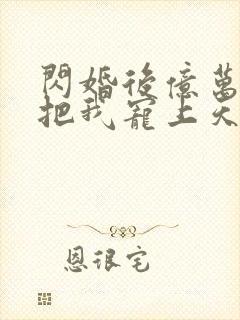 閃婚後億萬
把我寵上天
恩很宅